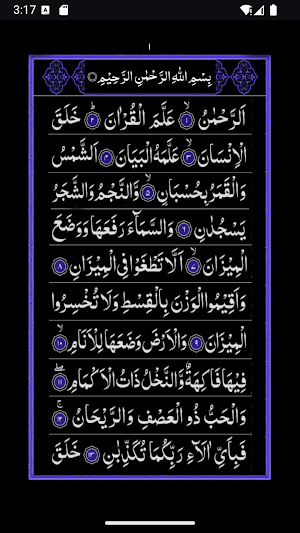 3:17
١
بِسْمِ اللهِ الرَّحْمٰنِ الرَّحِيْمِ
اَلرَّحْمٰنُ ۙ﴿١﴾ عَلَّمَ الْقُرْاٰنَ ؕ﴿٢﴾ خَلَقَ
الْاِنْسَانَ ۙ﴿٣﴾ عَلَّمَهُ الْبَيَانَ ﴿٤﴾ اَلشَّمْسُ
وَالْقَمَرُ بِحُسْبَانٍ ۙ﴿٥﴾ وَّالنَّجْمُ وَالشَّجَرُ
يَسْجُدٰنِ ﴿٦﴾ وَالسَّمَآءَ رَفَعَهَا وَوَضَعَ
الْمِيْزَانَ ۙ﴿٧﴾ اَلَّا تَطْغَوْا فِى الْمِيْزَانِ ﴿٨﴾
وَاَقِيْمُوا الْوَزْنَ بِالْقِسْطِ وَلَا تُخْسِرُوا
الْمِيْزَانَ ﴿٩﴾ وَالْاَرْضَ وَضَعَهَا لِلْاَنَامِ ۙ﴿١٠﴾
فِيْهَا فَاكِهَةٌ وَّالنَّخْلُ ذَاتُ الْاَكْمَامِ ۖ﴿١١﴾
وَالْحَبُّ ذُو الْعَصْفِ وَالرَّيْحَانُ ۚ﴿١٢﴾
فَبِاَىِّ اٰلَآءِ رَبِّكُمَا تُكَذِّبٰنِ ﴿١٣﴾ خَلَقَ